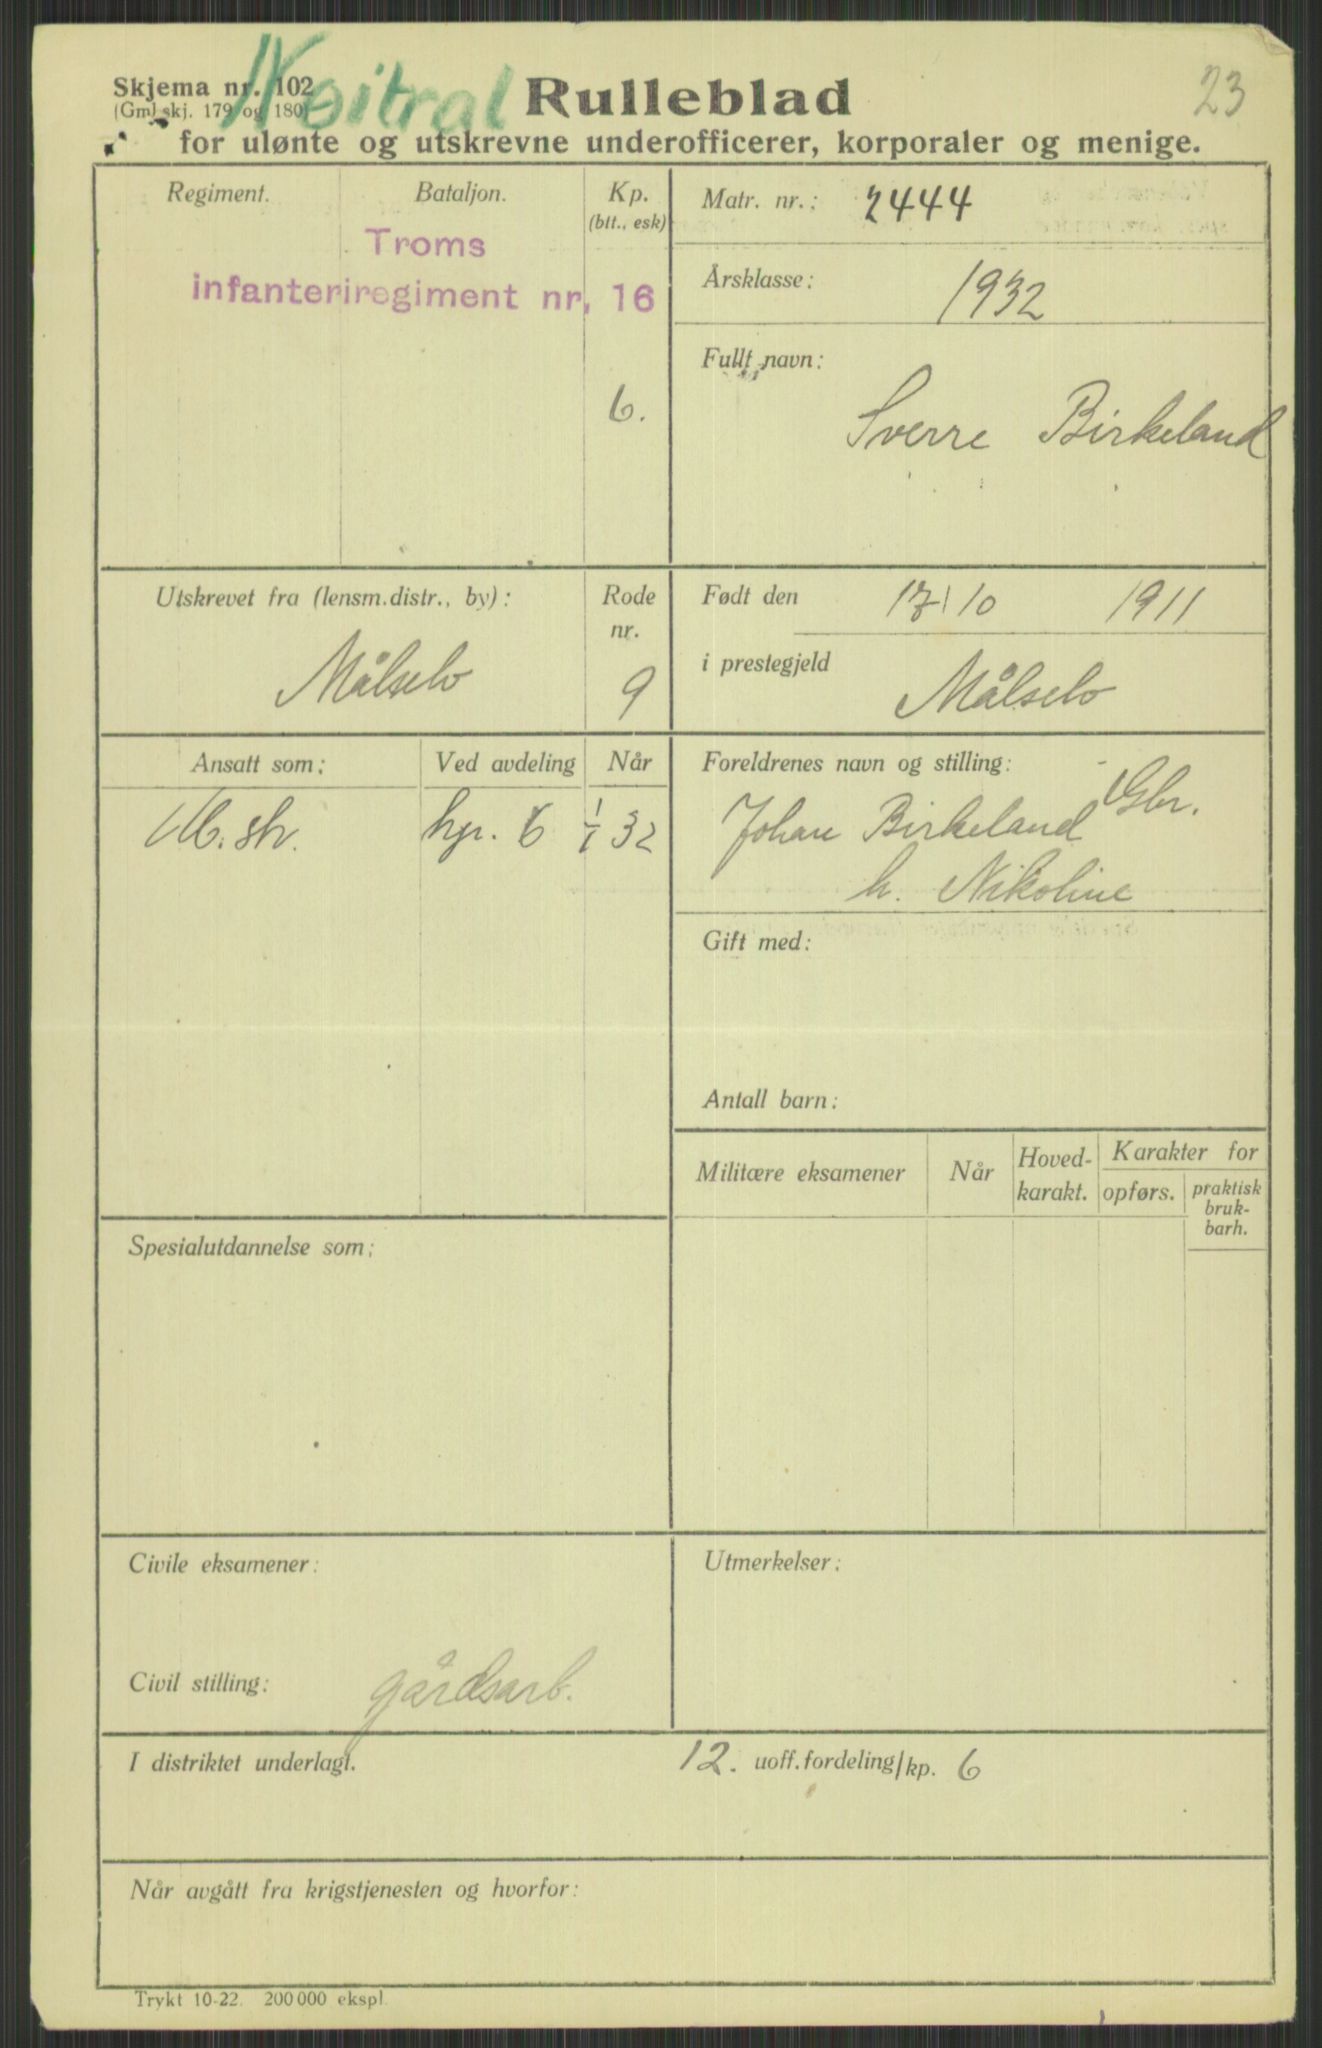 Nøitral
23
Skjema nr. 102
(Gml. skj. 179 og 180)
Rulleblad
for ulønte og utskrevne underofficerer, korporaler og menige.
Regiment.
Bataljon.
Kp.
(btt., esk)
Troms
infanteriregiment nr. 16
6.
Matr. nr.: 2444
Årsklasse: 1932
Fullt navn:
Sverre Birkeland
Utskrevet fra (lensm.distr., by):
Målselv
Rode
nr.
9
Født den 17/10 1911
i prestegjeld Målselv
Ansatt som:
Ved avdeling
Når
kp. 6 1/1 32
Foreldrenes navn og stilling:
Gbr.
Johan Birkeland
h. Nikoline
Gift med:
Antall barn:
Militære eksamener
Når
Hoved-
karakt.
Karakter for
opførs.
praktisk
bruk-
barh.
Spesialutdannelse som:
Civile eksamener:
Utmerkelser:
Civil stilling: gårdsarb.
I distriktet underlagt. 12. uoff.fordeling/kp. 6
Når avgått fra krigstjenesten og hvorfor:
Trykt 10-22. 200 000 ekspl.